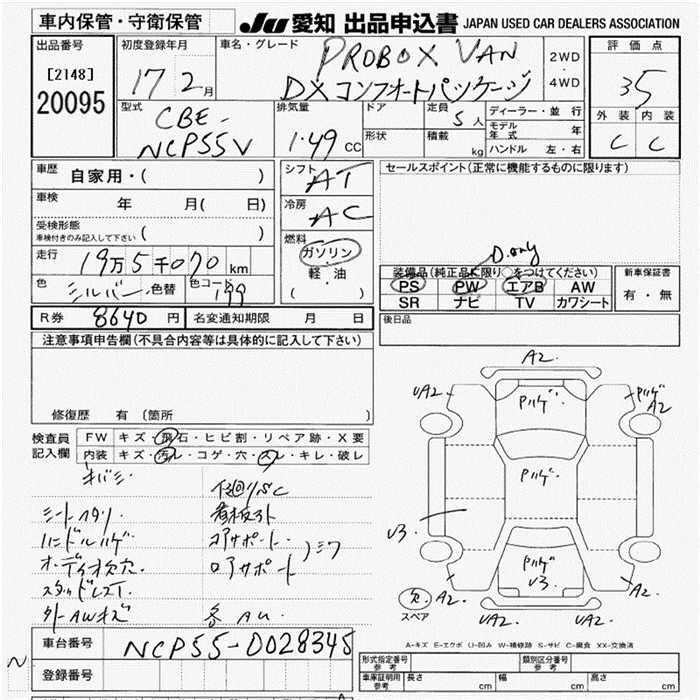 車内保管・守衛保管
JU 愛知 出品申込書 JAPAN USED CAR DEALERS ASSOCIATION
出品番号
[2148]
20095
初度登録年月
17 2月
車名・グレード
PROBOX VAN
DXコンフォートパッケージ
2WD
4WD
評価点
35
外装 内装
C C
型式
CBE-
NCP55V
排気量
1.49 CC
ドア
形状
定員
5人
積載
kg
ディーラー・並行
モデル年式 年
ハンドル 左・右
車歴
自家用・( )
車検
年 月( 日)
受検形態
車検付きのみ記入して下さい ( )
走行
19万5千070km
色
シルバー 色替
色コード
199
シフト
AT
冷房
AC
燃料
ガソリン
軽・油
( )
セールスポイント(正常に機能するものに限ります)
D.only
装備品(純正品に限り○をつけてください)
PS PW エアB AW
SR ナビ TV カワシート
新車保証書
有・無
R券 8640円 名変通知期限 月 日
後日品
注意事項申告欄(不具合内容等は具体的に記入して下さい)
修復歴 有〔箇所 〕
検査員
記入欄
FW キズ・飛石・ヒビ割・リペア跡・X要
内装 キズ・汚レ・コゲ・穴・スレ・キレ・破レ
キバミ
下廻りSC
シートヘタリ
看板外
ハンドルハゲ
コアサポート
オーディオ欠穴
ロアサポート
スタッドレス
外AWキズ
各AU
A2
UA2
Pハゲ
Pハゲ
A2
Pハゲ
U3
Pハゲ
U3
欠
スペア
A2
UA2
UA2
A2
A-キズ E-エクボ U-凹み W-補修跡 S-サビ C-腐食 XX-交換済
車台番号 NCP55-0028345
登録番号
形式指定番号
参考
類別区分番号
参考
車庫証明用
参考
長さ cm
幅 cm
高さ cm